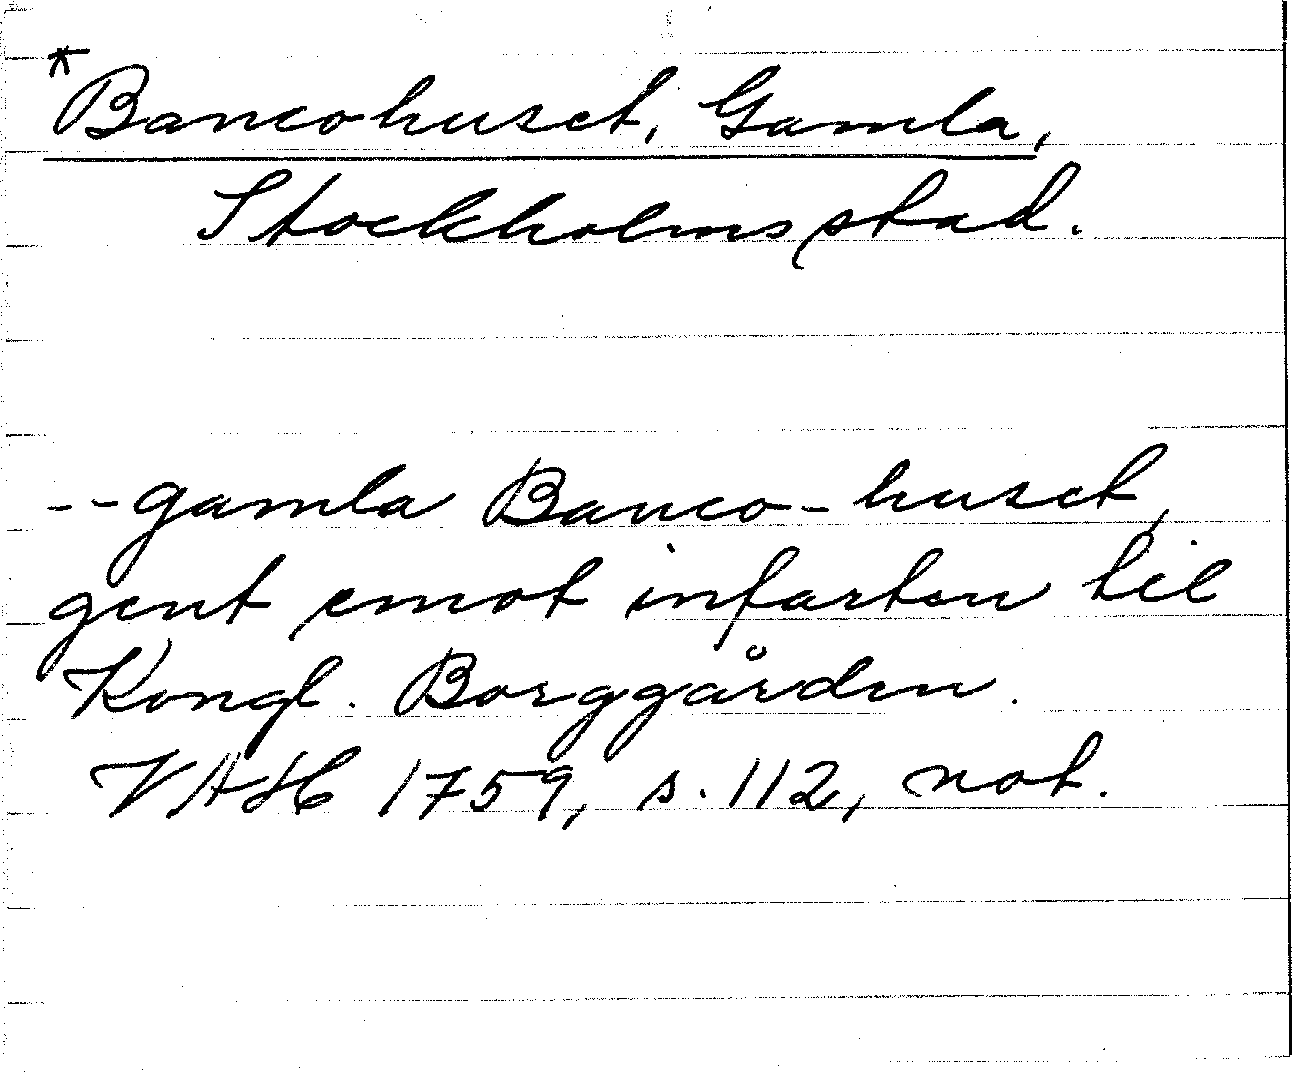 *Bancohuset, Gamla,
Stockholms stad.
--gamla Banco-huset,
gent emot infarten til
Kongl. Borggården.
VAH 1759, s. 112, not.